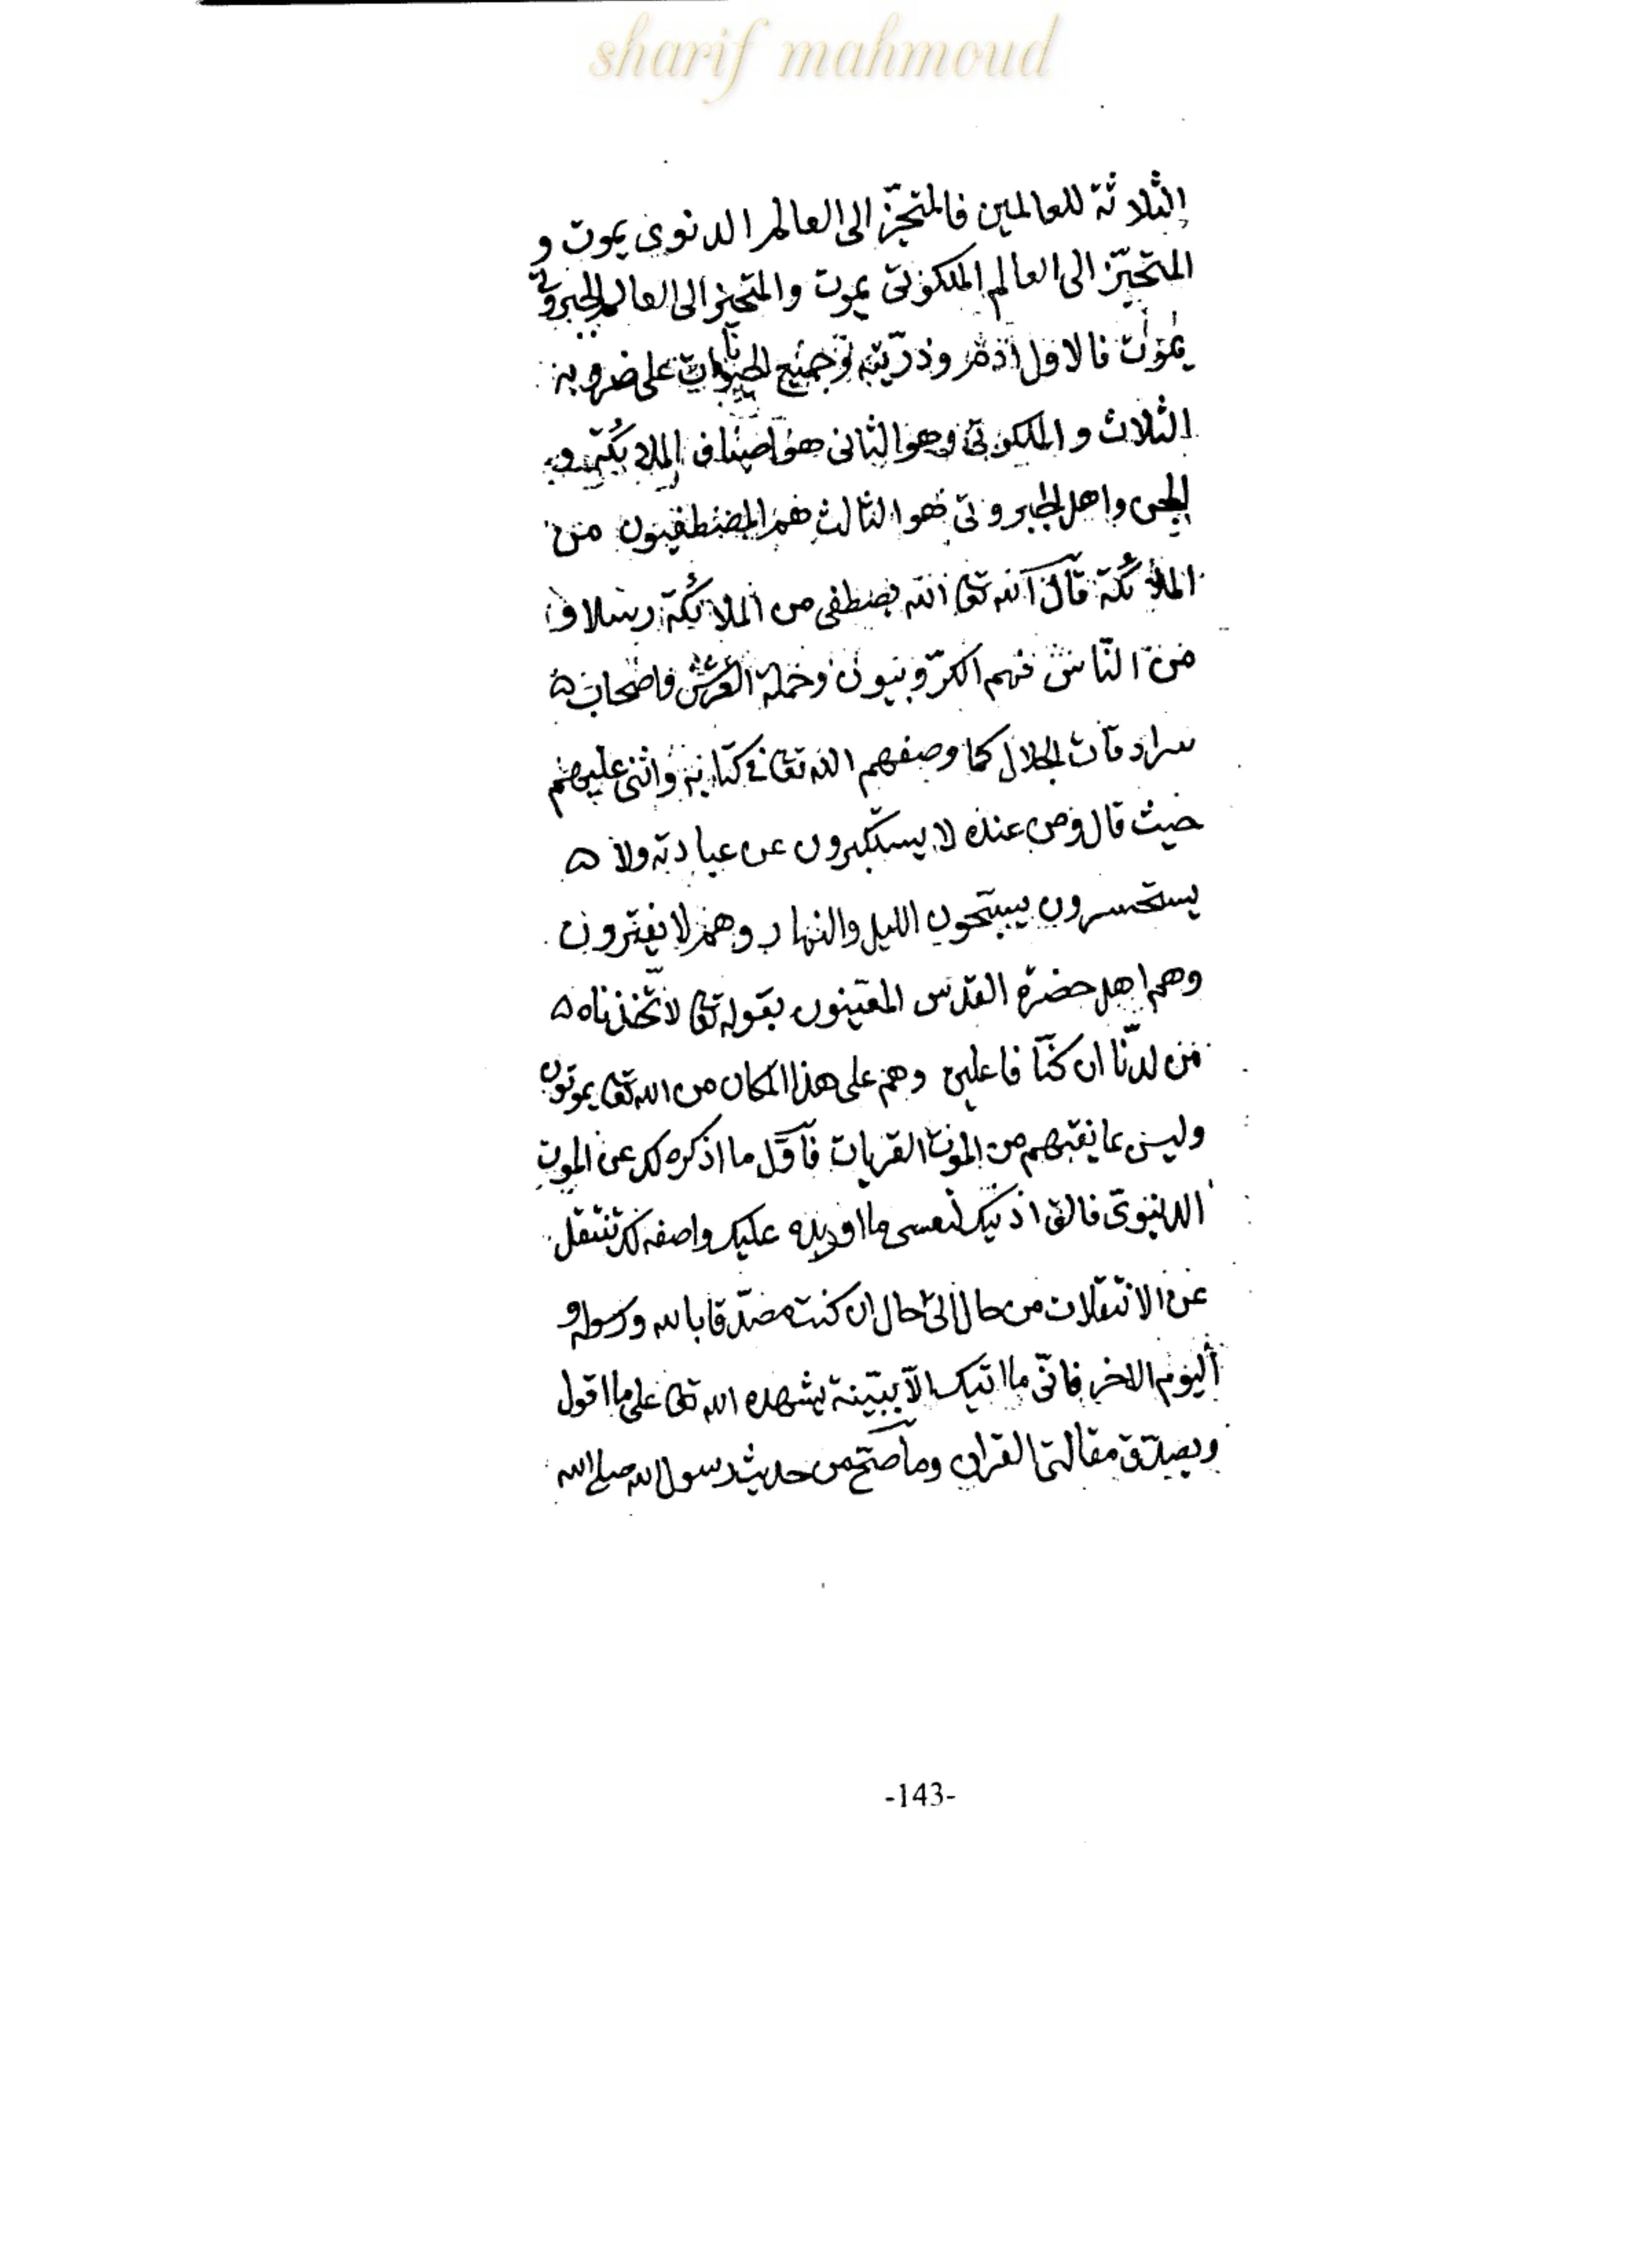 sharif mahmoud
الثلاثة للعالمين فالمتحيّز الى العالم الدنوى يموت و
المتحيّز الى العالم الملكوتى يموت والمتحيز الى العالم الجبروتى
يموت فالاول ادم وذرّيته وجميع الحيوانات على ضروبه
الثلاث والملكوتى وهو الثانى هو اصناف الملائكة و
الجن واهل الجبروتى فهو الثالث هم المصطفون من
الملائكة قال الله تعا الله يصطفى من الملائكة رسلا و
من الناس فهم الكرّوبيون وحملة العرش واصحاب ه
سرادقات الجلال كما وصفهم الله تعا فى كتابه واثنى عليهم
حيث قال ومن عنده لا يستكبرون عن عبادته ولا ه
يستحسرون يسبّحون الليل والنهار وهم لا يفترون
وهم اهل حضرة القدس المعنيون بقوله تعا لاتّخذناه ه
من لدنّا ان كنّا فاعلين وهم على هذا المكان من الله تعا يموتون
وليس من الموت القربات فاوّل ما اذكره لك عن الموت
الدنيوى فالق اذنيك ما اورده عليك واصفه لك تنتقل
عن الانتقلات من حال الى حال ان كنت مصدّقا بالله ورسوله و
اليوم الاخر فانّى ما اتيك الّا ببيّنة يشهد الله تعا على ما اقول
ويصدّق مقالتى القران وما صحّ من حديث رسول الله صلى الله
-143-